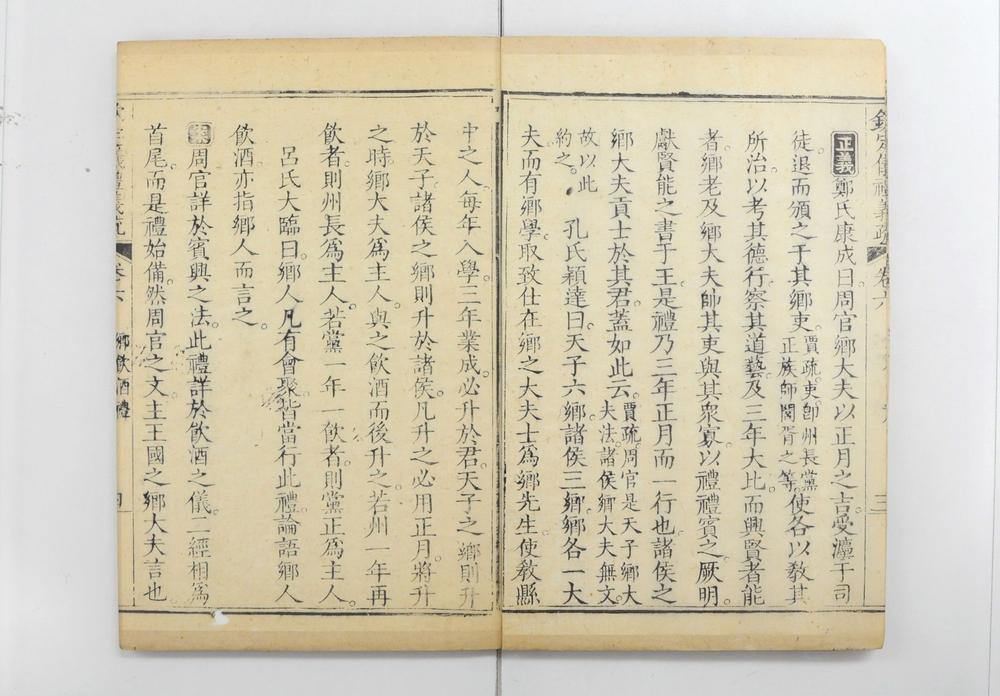 欽定儀禮義疏 卷六
正義鄭氏康成曰周官鄉大夫以正月之吉受灋于司
徒退而頒之于其鄉吏賈疏吏卽州長黨正族師閭胥之等使各以敎其
所治以考其德行察其道藝及三年大比而興賢者能
者鄉老及鄉大夫帥其吏與其衆寡以禮禮賓之厥明
獻賢能之書于王是禮乃三年正月而一行也諸侯之
鄉大夫貢士於其君蓋如此云賈疏周官是天子鄉大夫法諸侯鄉大夫無文
故以此約之 孔氏穎達曰天子六鄉諸侯三鄉鄉各一大
夫而有鄉學取致仕在鄉之大夫士爲鄉先生使敎縣
中之人每年入學三年業成必升於君天子之鄉則升
於天子諸侯之鄉則升於諸侯凡升之必用正月將升
之時鄉大夫爲主人與之飮酒而後升之若州一年再
飮者則州長爲主人若黨一年一飮者則黨正爲主人
呂氏大臨曰鄉人凡有會聚皆當行此禮論語鄉人
飮酒亦指鄉人而言之
案周官詳於賓興之法此禮詳於飮酒之儀二經相爲
首尾而是禮始備然周官之文主王國之鄉大夫言也
禮義疏 卷六 鄉飮酒禮 四